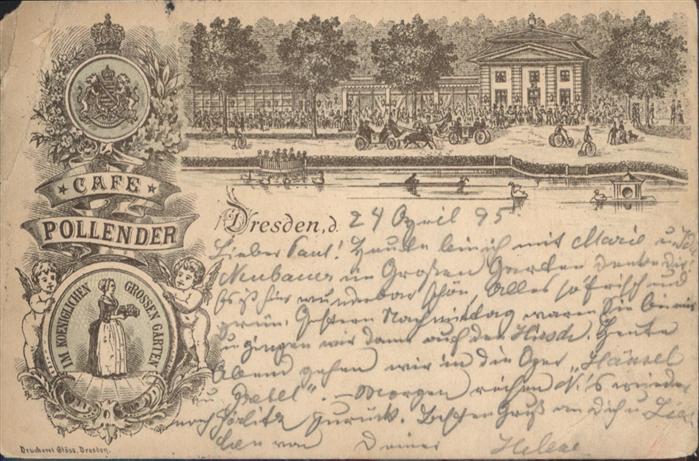 CAFE
POLLENDER
IM KOENIGLICHEN GROSSEN GARTEN
Dresden, d. 24 April 95
Lieber Paul! Heute bin ich mit Marie u.
Neubauer im Großen Garten
Es ist hier wunderbar schön, alles so frisch und
grün. Gestern Nachmittag waren Sie bei mir
u gingen wir dann auf den Hirsch. Heute
Abend gehen wir in die Oper „Hänsel
u Gretel". – Morgen reisen N.'s wieder
nach Görlitz zurück. Besten Gruß an Dich u
von Deiner Helene
Druckerei Glöss, Dresden.